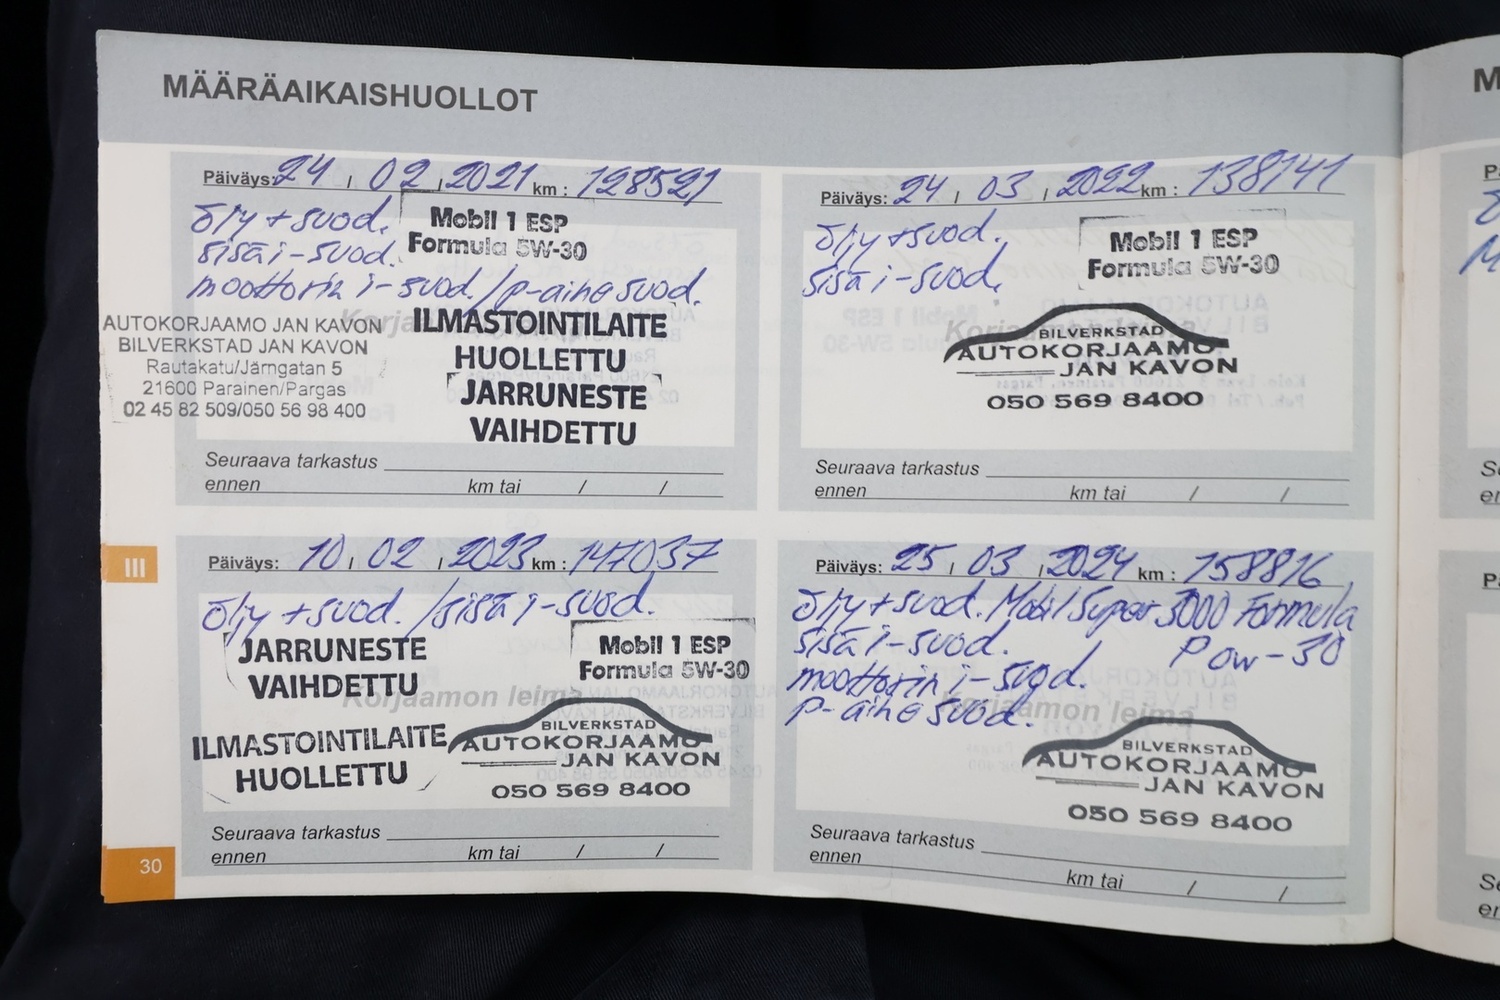 MÄÄRÄAIKAISHUOLLOT
Päiväys: 24 / 02 / 2021 km : 128521
öljy + suod.
Mobil 1 ESP
Formula 5W-30
sisäi-suod.
moottorin i-suod. / p-aine suod.
AUTOKORJAAMO JAN KAVON
BILVERKSTAD JAN KAVON
Rautakatu/Järngatan 5
21600 Parainen/Pargas
02 45 82 509/050 56 98 400
ILMASTOINTILAITE
HUOLLETTU
JARRUNESTE
VAIHDETTU
Seuraava tarkastus
ennen km tai / /
Päiväys: 24 / 03 / 2022 km : 138141
öljy + suod.
sisäi-suod.
Mobil 1 ESP
Formula 5W-30
Korjaamon leima
BILVERKSTAD
AUTOKORJAAMO
JAN KAVON
050 569 8400
Seuraava tarkastus
ennen km tai / /
III
Päiväys: 10 / 02 / 2023 km : 147037
öljy + suod. / sisäi-suod.
JARRUNESTE
VAIHDETTU
Mobil 1 ESP
Formula 5W-30
Korjaamon leima
ILMASTOINTILAITE
HUOLLETTU
BILVERKSTAD
AUTOKORJAAMO
JAN KAVON
050 569 8400
Seuraava tarkastus
ennen km tai / /
Päiväys: 25 / 03 / 2024 km : 158816
öljy + suod. Mobil Super 3000 Formula
P 0w-30
sisäi-suod.
moottorin i-suod.
p-aine suod.
Korjaamon leima
BILVERKSTAD
AUTOKORJAAMO
JAN KAVON
050 569 8400
Seuraava tarkastus
ennen km tai / /
30